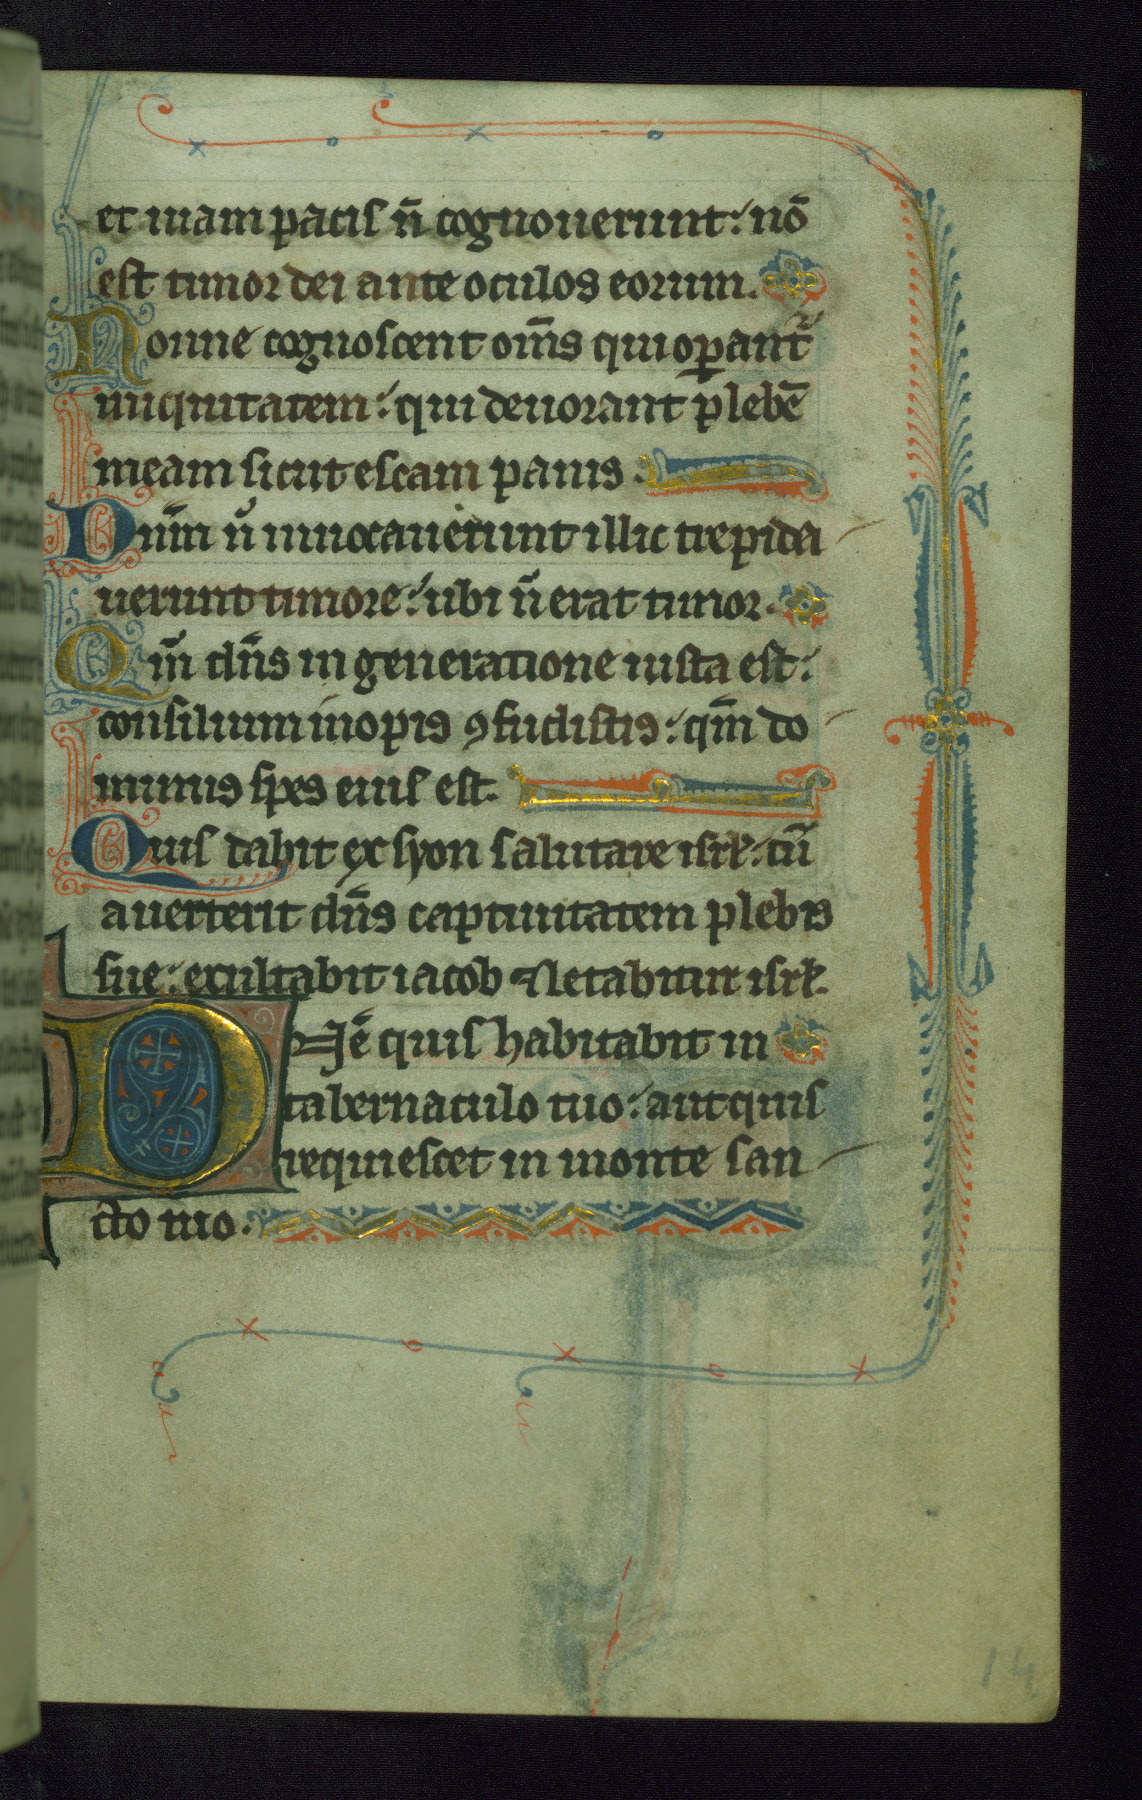 et uiam pacis ñ cognouerunt: nō
est timor dei ante oculos eorum.
Nonne cognoscent om̄s qui oꝑant᷑
iniquitatem: qui deuorant plebē
meam sicut escam panis.
Dn̄m ñ inuocauerunt illic trepida
uerunt timore: ubi ñ erat timor.
Qm̄ dn̄s in generatione iusta est:
consilium inopis ꝯfudistis: qm̄ do
minus sp̄es eius est.
Quis dabit ex syon salutare isrł: cū
auerterit dn̄s captiuitatem plebis
sue: exultabit iacob ⁊ letabitur isrł.
Dn̄e quis habitabit in
tabernaculo tuo: aut quis
requiescet in monte san
cto tuo.
14